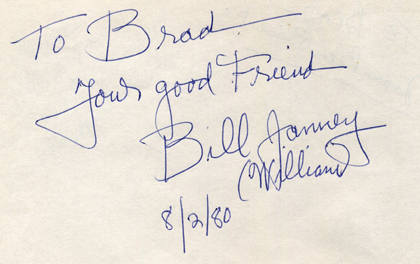 To Brad
Your good Friend
Bill Janney
(William)
8/2/80